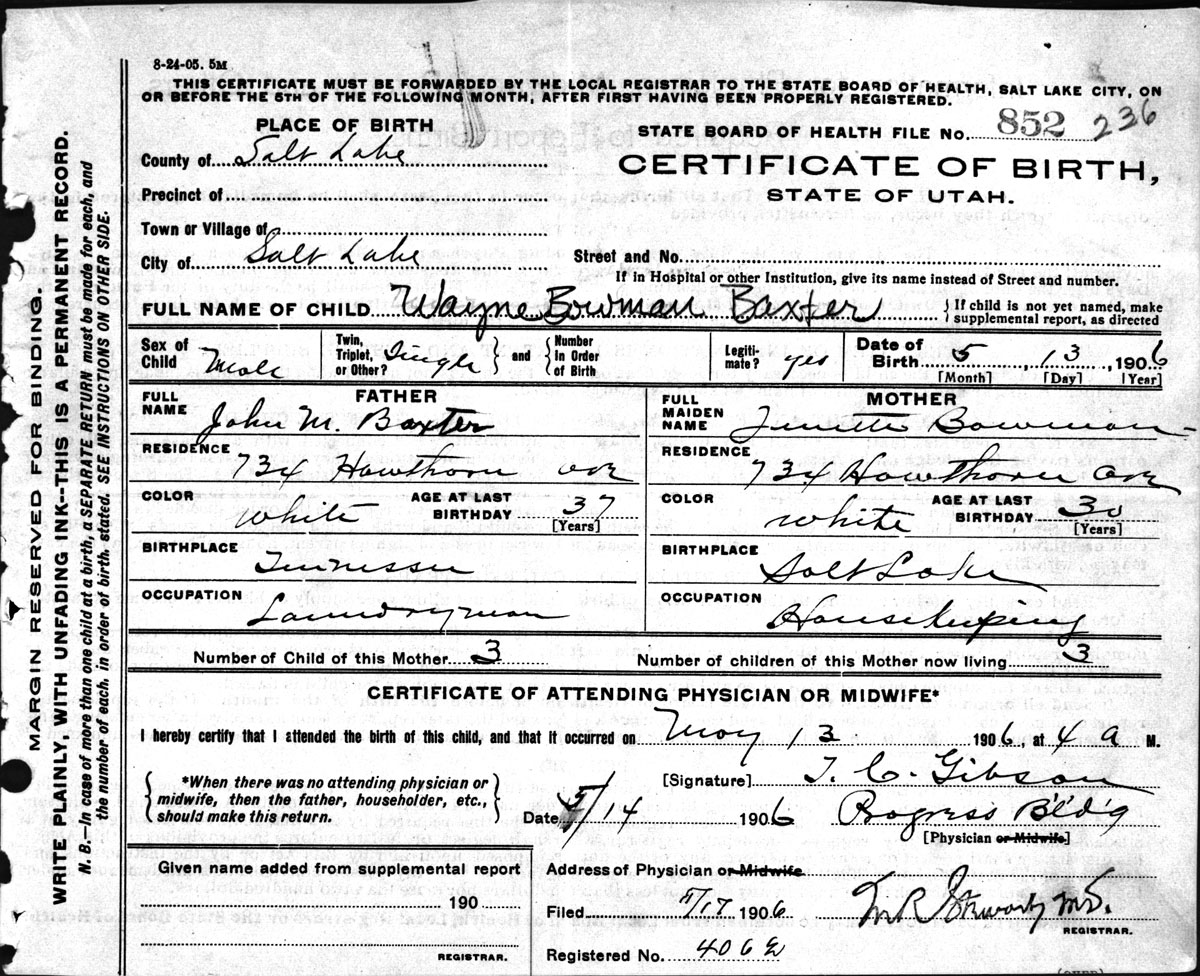 8-24-05. 5M
THIS CERTIFICATE MUST BE FORWARDED BY THE LOCAL REGISTRAR TO THE STATE BOARD OF HEALTH, SALT LAKE CITY, ON
OR BEFORE THE 5TH OF THE FOLLOWING MONTH, AFTER FIRST HAVING BEEN PROPERLY REGISTERED.
PLACE OF BIRTH
County of Salt Lake
Precinct of
Town or Village of
City of Salt Lake
STATE BOARD OF HEALTH FILE No. 852 236
CERTIFICATE OF BIRTH,
STATE OF UTAH.
Street and No.
If in Hospital or other Institution, give its name instead of Street and number.
FULL NAME OF CHILD Wayne Bowman Baxter
If child is not yet named, make
supplemental report, as directed
Sex of Child Male
Twin, Triplet, or Other? Single and Number in Order of Birth
Legitimate? yes
Date of Birth 5, 13, 1906
[Month] [Day] [Year]
FATHER
FULL NAME John M. Baxter
RESIDENCE 734 Hawthorn ave
COLOR White AGE AT LAST BIRTHDAY 37 [Years]
BIRTHPLACE Tennessee
OCCUPATION Laundryman
MOTHER
FULL MAIDEN NAME Bowman
RESIDENCE 734 Hawthorn ave
COLOR White AGE AT LAST BIRTHDAY 30 [Years]
BIRTHPLACE Salt Lake
OCCUPATION Housekeeping
Number of Child of this Mother 3
Number of children of this Mother now living 3
CERTIFICATE OF ATTENDING PHYSICIAN OR MIDWIFE*
I hereby certify that I attended the birth of this child, and that it occurred on May 13 1906, at 4 a M.
*When there was no attending physician or
midwife, then the father, householder, etc.,
should make this return.
[Signature] T. C. Gibson
Date 5/14 1906 Progress Bldg
[Physician or Midwife]
Given name added from supplemental report
190
REGISTRAR.
Address of Physician or Midwife
Filed 5/17 1906 M.D.
REGISTRAR.
Registered No.
MARGIN RESERVED FOR BINDING.
WRITE PLAINLY, WITH UNFADING INK--THIS IS A PERMANENT RECORD.
N. B.--In case of more than one child at a birth, a SEPARATE RETURN must be made for each, and
the number of each, in order of birth, stated. SEE INSTRUCTIONS ON OTHER SIDE.